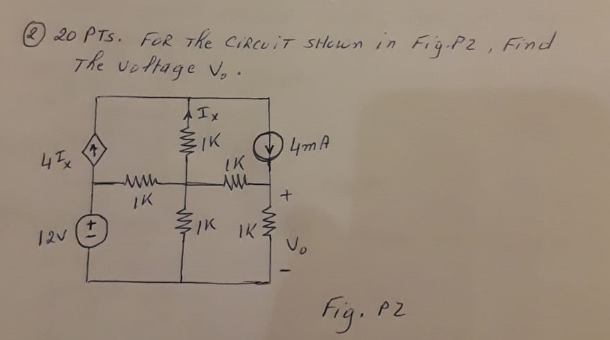 ② 20 PTS. FOR The CIRCUIT SHOWN in Fig.P2, Find
The Voltage Vo.
Ix
4Ix
1K
4mA
1K
1K
+
12V
+
-
1K
1K
Vo
-
Fig. P2